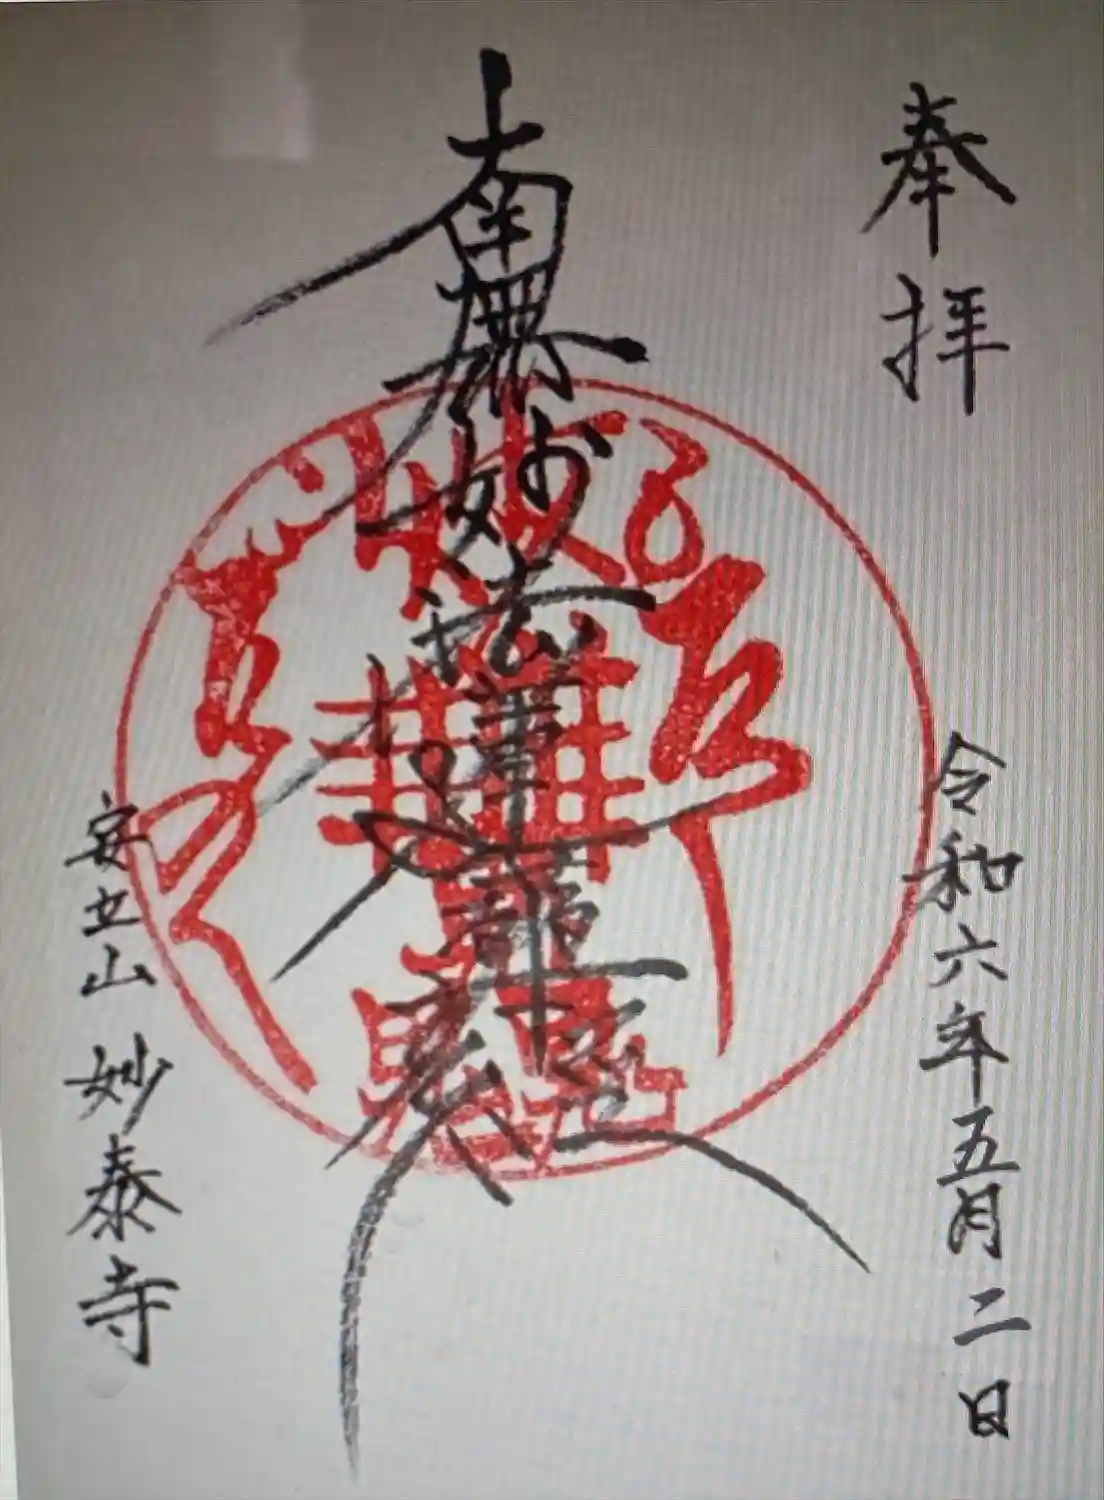 奉拝
令和六年五月二日
南無妙法蓮華経
安立山 妙泰寺